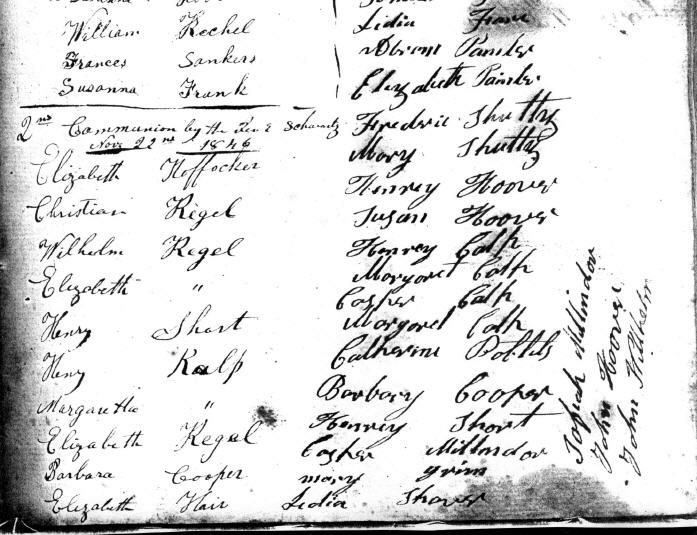 William Rechel
Frances Sankers
Susanna Frank
2nd Communion by the Rev. E Schwartz
Nov. 22nd 1846
Elizabeth Hoffocker
Christian Regel
Wilhelm Regel
Elizabeth "
Henry Short
Henry Kalp
Margaretha "
Elizabeth Regal
Barbara Cooper
Elizabeth Hair
Lidia
Abram Painter
Elyzabeth Painter
Fredric Shutty
Mary Shutty
Henrey Hoover
Susan Hoover
Henrey Calp
Margaret Calp
Casper Calp
Margaret Calp
Catherine
Barbary Cooper
Henrey Short
Casper Millindor
mary grim
Lidia Shaver
Josiah Millindor
John Hoover
John Wilhelm